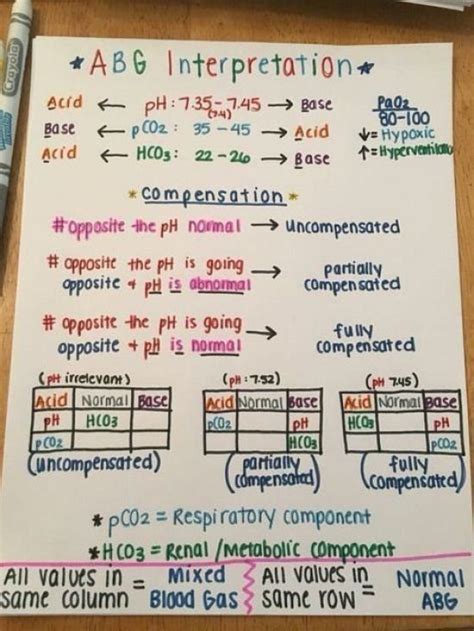 Crayola
*ABG Interpretation*
Acid ← pH: 7.35-7.45 → Base
(7.4)
Base ← pCO2: 35-45 → Acid
Acid ← HCO3: 22-26 → Base
PaO2
80-100
↓= Hypoxic
↑= Hyperventilate
*compensation*
#opposite the pH normal → uncompensated
# opposite the pH is going opposite + pH is abnormal → partially compensated
# opposite the pH is going opposite + pH is normal → fully compensated
(pH irrelevant)
Acid Normal Base
pH HCO3
pCO2
(uncompensated)
(pH: 7.52)
Acid Normal Base
pCO2 pH
HCO3
(partially compensated)
(pH 7.45)
Acid Normal Base
HCO3 pH
pCO2
(fully compensated)
*pCO2 = Respiratory component
*HCO3 = Renal/Metabolic component
All values in same column = Mixed Blood Gas
All values in same row = Normal ABG